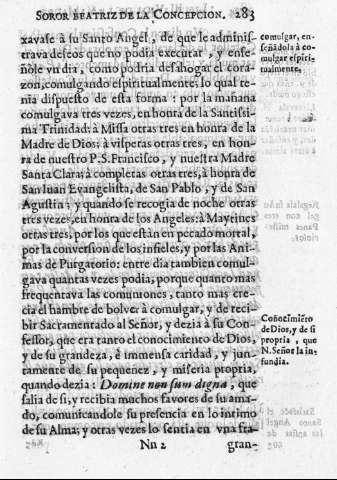 SOROR BEATRIZ DE LA CONCEPCION. 283
xavase à su Santo Angel, de que le adminis-
trava deseos que no podia executar, y ense-
ñole vn dia, como podria desahogar el cora-
zon, comulgando espiritualmente; lo qual te-
nia dispuesto de esta forma: por la mañana
comulgava tres vezes, en honra de la Santissi-
ma Trinidad: à Missa otras tres en honra de la
Madre de Dios; à visperas otras tres, en hon-
ra de nuestro P.S. Francisco, y nuestra Madre
Santa Clara; à completas otras tres, à honra de
San Iuan Evangelista, de San Pablo, y de San
Agustin; y quando se recogia de noche otras
tres vezes, en honra de los Angeles: à Maytines
otras tres, por los que estàn en pecado mortal,
por la conversion de los infieles, y por las Ani-
mas de Purgatorio: entre dia tambien comul-
gava quantas vezes podia, porque quanto mas
frequentava las comuniones, tanto mas cre-
cia el hambre de bolver à comulgar, y de reci-
bir Sacramentado al Señor, y dezia à su Con-
fessor, que era tanto el conocimiento de Dios,
y de su grandeza, è immensa caridad, y jun-
tamente de su pequeñez, y miseria propria,
quando dezia: Domine non sum digna, que
salia de si, y recibia muchos favores de su ama-
do, comunicandole su presencia en lo intimo
de su Alma; y otras vezes lo sentia en vna fra-
Nn 2 gran-
comulgar, en-
señadola à co-
mulgar espiri-
tualmente.
Conocimiẽto
de Dios, y de si
propria, que
N. Señor la in-
fundia.